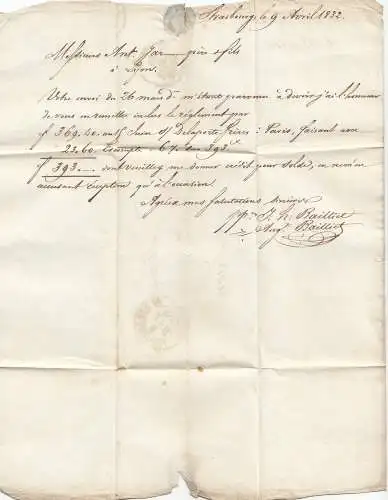 Strasbourg, le 9 Avril 1832.
Messieurs Ant. père & fils
à Lyon.
Votre envoi du 26 m'étant parvenu à j'ai l'honneur
de vous en remettre inclus le règlement par
f 369.40. Juin s/ Delaporte frères : Paris, faisant avec
23.60. Escompte 6% sur 393
f 393.— dont veuillez me donner crédit pour solde, en m'en
accusant réception qu'à l'occasion.
Agréez mes salutations
ppon J. h.Ailliot
Aug.Ailliot